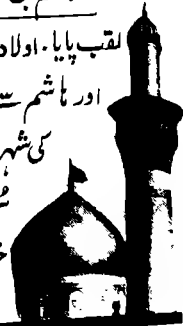 لقب پایا۔ اولاد
اور ہاشم سے
کی شہر